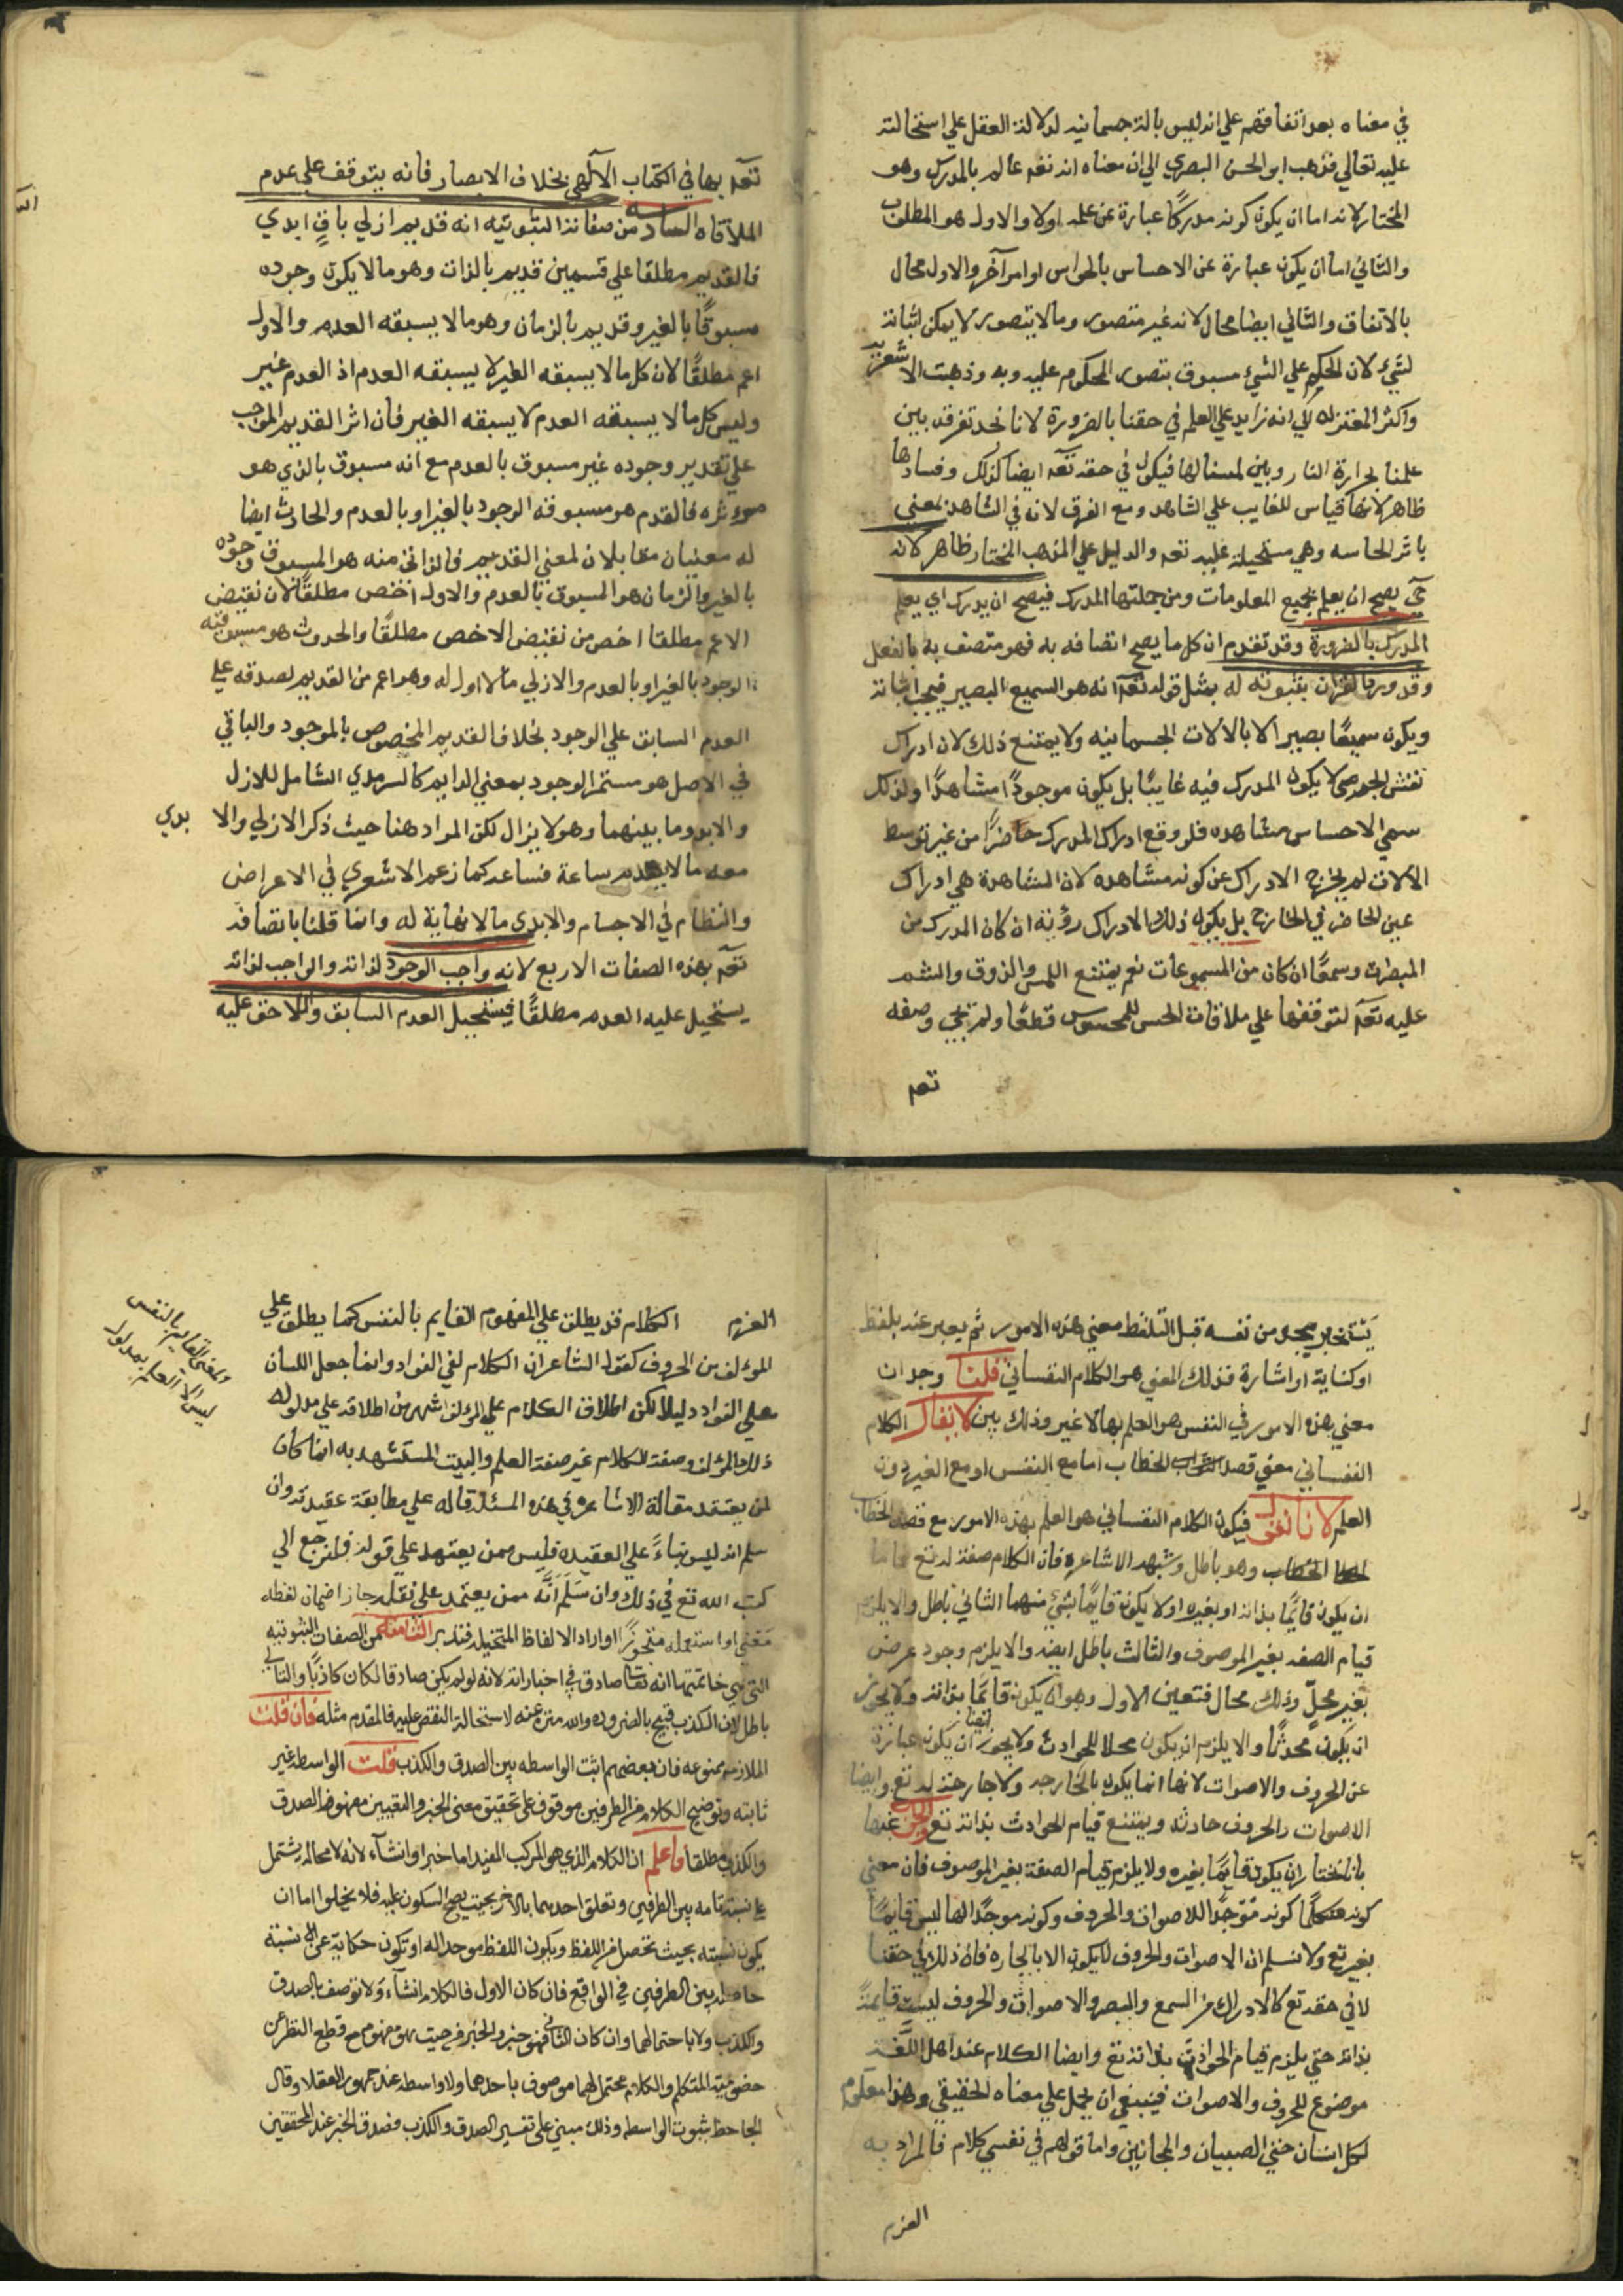 في معناه بعد اتفاقهم علي انه ليس بالة جسمانيه لدلالة العقل علي استحالته
عليه تعالي فذهب ابو الحسن البصري الي ان معناه انه تعه عالم بالمدرك وهو
المختار لانه اما ان يكون كونه مدركًا عبارة عن علمه اولا والاول هو المطلوب
والثاني اما ان يكون عبارة عن الاحساس بالحواس او امر آخر والاول محال
بالاتفاق والثاني ايضا محال لانه غير متصور وما لا يتصور لا يمكن اثباته
لشيء لان الحكم علي الشيء مسبوق بتصور المحكوم عليه وبه وذهبت الاشعريه
واكثر المعتزله الي انه زايد علي العلم في حقنا بالضرورة لانا نجد تفرقه بين
علمنا بحرارة النار وبين لمسنا لها فيكون في حقه تعه ايضا كذلك وفسادها
ظاهر لانها قياس للغايب علي الشاهد ومع الفرق لان في الشاهد بمعني
باثر الحاسه وهي مستحيلة عليه تعه والدليل علي المذهب المختار ظاهر لانه
حي يصح ان يعلم بجميع المعلومات ومن جملتها المدرك فيصح ان يدرك اي يعلم
المدرك بالضرورة وقد تقدم ان كل ما يصح اتصافه به فهو متصف به بالفعل
وقد ورد القران بثبوته له بمثل قوله تعه انه هو السميع البصير فيجب اثباته
ويكون سميعًا بصيرا لا بالالات الجسمانيه ولا يمتنع ذلك لان ادراك
نفس الجوهر لا يكون المدرك فيه غايبًا بل يكون موجودًا مشاهدًا ولذلك
سمي الاحساس مشاهده فلو وقع ادراك المدرك حاضرًا من غير توسط
الالات لم يخرج الادراك عن كونه مشاهده لان المشاهدة هي ادراك
عين الحاضر في الخارج بل يكون ذلك الادراك رؤية ان كان المدرك من
المبصرات وسمعًا ان كان من المسموعات نعم يمتنع اللمس والذوق والشم
عليه تعه لتوقفها علي ملاقات الحس للمحسوس قطعًا ولم يجئ وصفه
تعه
تعه بها في الكتاب الآلهي بخلاف الابصار فانه يتوقف علي عدم
الملاقاه السادسه من صفاته الثبوتيه انه قديم ازلي باقٍ ابدي
فالقديم مطلقا علي قسمين قديم بالذات وهو ما لا يكون وجوده
مسبوقًا بالغير وقديم بالزمان وهو ما لا يسبقه العدم والاول
اعم مطلقًا لان كل ما لا يسبقه الغير لا يسبقه العدم اذ العدم غير
وليس كل ما لا يسبقه العدم لا يسبقه الغير فان اثر القديم الموجب
علي تقدير وجوده غير مسبوق بالعدم مع انه مسبوق بالذي هو
موثره فالقدم هو مسبوقة الوجود بالغير او بالعدم والحادث ايضا
له معنيان مقابلان لمعني القديم فالذاتي منه هو المسبوق وجوده
بالغير والزمان هو المسبوق بالعدم والاول اخص مطلقًا لان نقيض
الاعم مطلقا اخص من نقيض الاخص مطلقًا والحدوث هو مسبوقيه
الوجود بالغير او بالعدم والازلي ما لا اول له وهو اعم من القديم لصدقه علي
العدم السابق علي الوجود بخلاف القديم المخصوص بالموجود والباقي
في الاصل هو مستمر الوجود بمعني الدايم كالسرمدي الشامل للازل
والابد وما بينهما وهو لا يزال لكن المراد هنا حيث ذكر الازلي والا بدي
معه ما لا يعدم ساعة فساعه كما زعم الاشعري في الاعراض
والنظام في الاجسام والابدي ما لا نهاية له وانما قلنا باتصافه
تعه بهذه الصفات الاربع لانه واجب الوجود لذاته والواجب لذاته
يستحيل عليه العدم مطلقًا فيستحيل العدم السابق واللاحق عليه
يستخبر يجد من نفسه قبل التلفظ معني هذه الامور ثم يعبر عنه بلفظ
او كناية او اشارة فذلك المعني هو الكلام النفساني قلنا وجدان
معني هذه الامور في النفس هو العلم بها لا غير وذلك بين لا يقال الكلام
النفساني معني قصد الخطاب اما مع النفس او مع الغير دون
العلم لانا نقول فيكون الكلام النفساني هو العلم بهذه الامور مع قصد الخطاب
الخطاب وهو باطل وشبهه الاشاعره فان الكلام صفة له تع فاما
ان يكون قايمًا بذاته او بغيره او لا يكون قايمًا بشيء منهما الثاني باطل والا يلزم
قيام الصفه بغير الموصوف والثالث باطل ايضه والا يلزم وجود عرض
بغير محلٍّ وذلك محال فتعين الاول وهو ان يكون قايمًا بذاته ولا يجوز
ان يكون محدثًا والا يلزم ان يكون محلا للحوادث ولا يجوز ايضا ان يكون عبارة
عن الحروف والاصوات لانها انما يكون بالخارجه ولا جارحة له تع وايضا
الاصوات والحروف حادثه ويمتنع قيام الحوادث بذاته تع والجواب عنها
بانا نختار ان يكون قايمًا بغيره ولا يلزم قيام الصفة بغير الموصوف فان معني
كونه متكلمًا كونه موجدًا للاصوات والحروف وكونه موجدًا لها ليس قايمًا
بغيره تع ولا نسلم ان الاصوات والحروف لا يكون الا بالجاره فان ذلك في حقنا
لا في حقه تع كالادراك من السمع والبصر والاصوات والحروف ليست قايمة
بذاته حتي يلزم قيام الحوادث بذاته تع وايضا الكلام عند اهل اللغة
موضوع للحروف والاصوات فينبغي ان يحمل علي معناه الحقيقي وهذا معلوم
لكل انسان حتي الصبيان والمجانين واما قولهم في نفسي كلام فالمراد به
العزم
العزم الكلام قد يطلق علي المفهوم القايم بالنفس كما يطلق علي
المؤلف من الحروف كقول الشاعر ان الكلام لفي الفواد وانما جعل اللسان
علي الفواد دليلا لكن اطلاق الكلام علي المؤلف اشهر من اطلاقه علي مدلوله
ذلك المؤلف وصفة الكلام غير صفة العلم والبيت المستشهد به انما كان
لمن يعتقد مقالة الاشاعره في هذه المسئلة قاله علي مطابقة عقيدته وان
سلم انه ليس بناءً علي العقيده فليس ممن يعتمد علي قوله فلنرجع الي
كتب الله تع في ذلك وان سلم انه ممن يعتمد علي نقله جاز اضمان لفظه
معني او استعمله متجوزًا او اراد الالفاظ المتخيله فتدبر الثامنه من الصفات الثبوتيه
التي هي خاتمتها انه تعا صادق في اخباراته لانه لو لم يكن صادقا لكان كاذبًا والتالي
باطل لان الكذب قبيح بالضروره والله منزه عنه لاستحالة النقص عليه فالمقدم مثله فان قلت
الملازمه ممنوعه فان بعضهم اثبت الواسطه بين الصدق والكذب قلت الواسطه غير
ثابته وتوضيح الكلام من الطرفين موقوف علي تحقيق معني الخبر والتعيين مفهوم الصدق
والكذب مطلقا فاعلم ان الكلام الذي هو المركب المفيد اما خبر او انشآء لانه لا محاله يشتمل
علي نسبة تامه بين الطرفين وتعلق احدهما بالاخر بحيث يصح السكون عليه فلا يخلوا اما ان
يكون نسبته بحيث تحصل من اللفظ ويكون اللفظ موجدا له او تكون حكاية عن نسبة
حاصله بين الطرفين في الواقع فان كان الاول فالكلام انشآء ولا توصف بالصدق
والكذب ولا باحتمالهما وان كان الثاني فهو خبر والخبر من حيث هو مفهوم مع قطع النظر عن
خصوصية المتكلم والكلام محتمل لهما موصوف باحدهما ولا واسطه عند جمهور العقلا وقال
الجاحظ بثبوت الواسطه وذلك مبني علي تفسير الصدق والكذب فصدق الخبر عند المحققين
والمعني القايم بالنفس
ليس الا العلم بمدلول